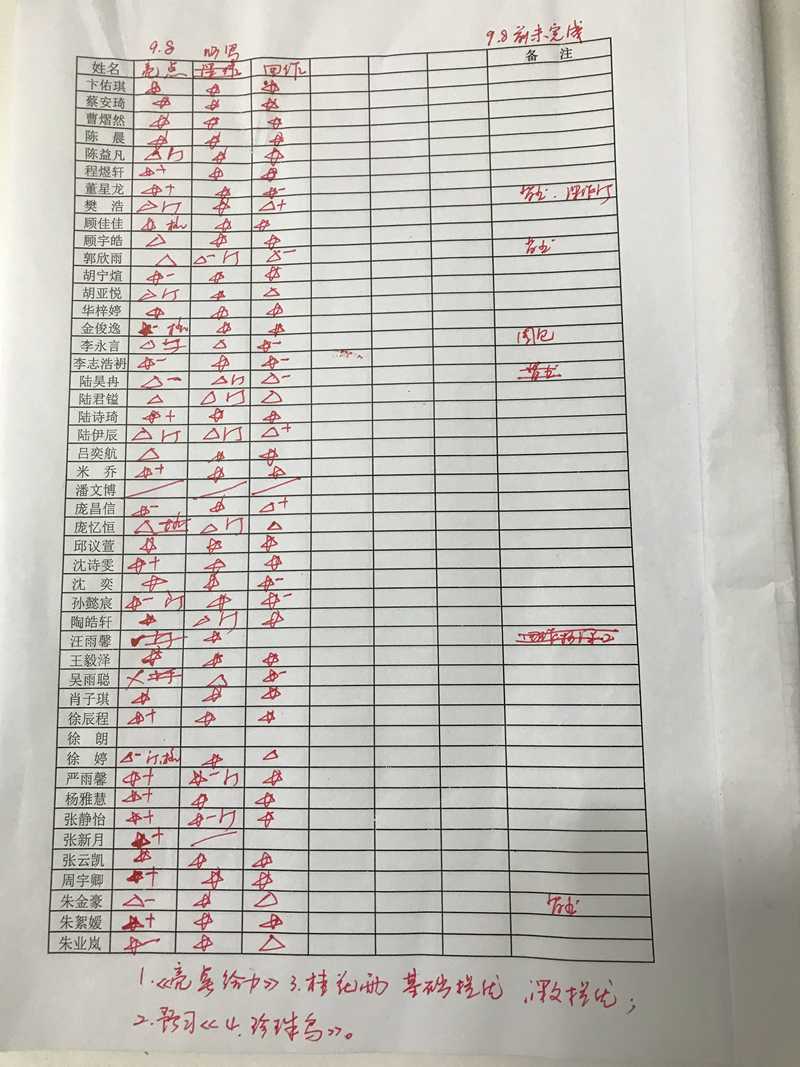 9.8
9.8前未完成
姓名 亮点 回作 备 注
卞佑琪 ☆ ☆ ☆
蔡安琦 ☆ ☆ ☆
曹熠然 ☆ ☆ ☆
陈 晨 ☆ ☆ ☆
陈益凡 △订 ☆ ☆
程煜轩 ☆+ ☆ ☆
董星龙 ☆+ ☆ ☆-
樊 浩 △订 ☆ △+
顾佳佳 ☆ ☆ ☆
顾宇皓 △ ☆ ☆
郭欣雨 △ △-订 △-
胡宁煊 ☆- ☆ ☆
胡亚悦 △订 ☆ △
华梓婷 ☆ ☆ ☆
金俊逸 ☆- ☆ ☆
李永言 △ △ ☆-
李志浩礽 ☆- ☆ ☆
陆昊冉 △- △订 △-
陆君镒 △ △订 △
陆诗琦 ☆+ ☆ ☆
陆伊辰 △订 △订 △+
吕奕航 △ ☆ ☆
米 乔 ☆+ ☆ ☆
潘文博
庞昌信 ☆- ☆ △+
庞忆恒 △ △订 △
邱议萱 ☆ ☆ ☆
沈诗雯 ☆+ ☆ ☆
沈 奕 ☆ ☆ ☆-
孙懿宸 ☆-订 ☆ ☆-
陶皓轩 ☆ △订 ☆
汪雨馨 ☆
王毅泽 ☆ ☆ ☆
吴雨聪 △ ☆-
肖子琪 ☆ ☆ ☆
徐辰程 ☆+ ☆ ☆
徐 朗
徐 婷 △-订 ☆ △
严雨馨 ☆+ ☆-订 ☆
杨雅慧 ☆+ ☆ ☆
张静怡 ☆+ ☆-订 ☆
张新月 ☆+
张云凯 ☆ ☆ ☆
周宇卿 ☆+ ☆ ☆
朱金豪 △- ☆ △
朱絮媛 ☆+ ☆ ☆
朱业岚 ☆- ☆ △
1.《亮点给力》3.桂花雨 基础提优 课文提优;
2.预习《4.珍珠鸟》。